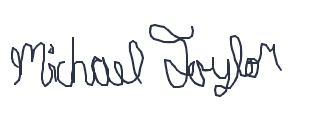 Michael Taylor